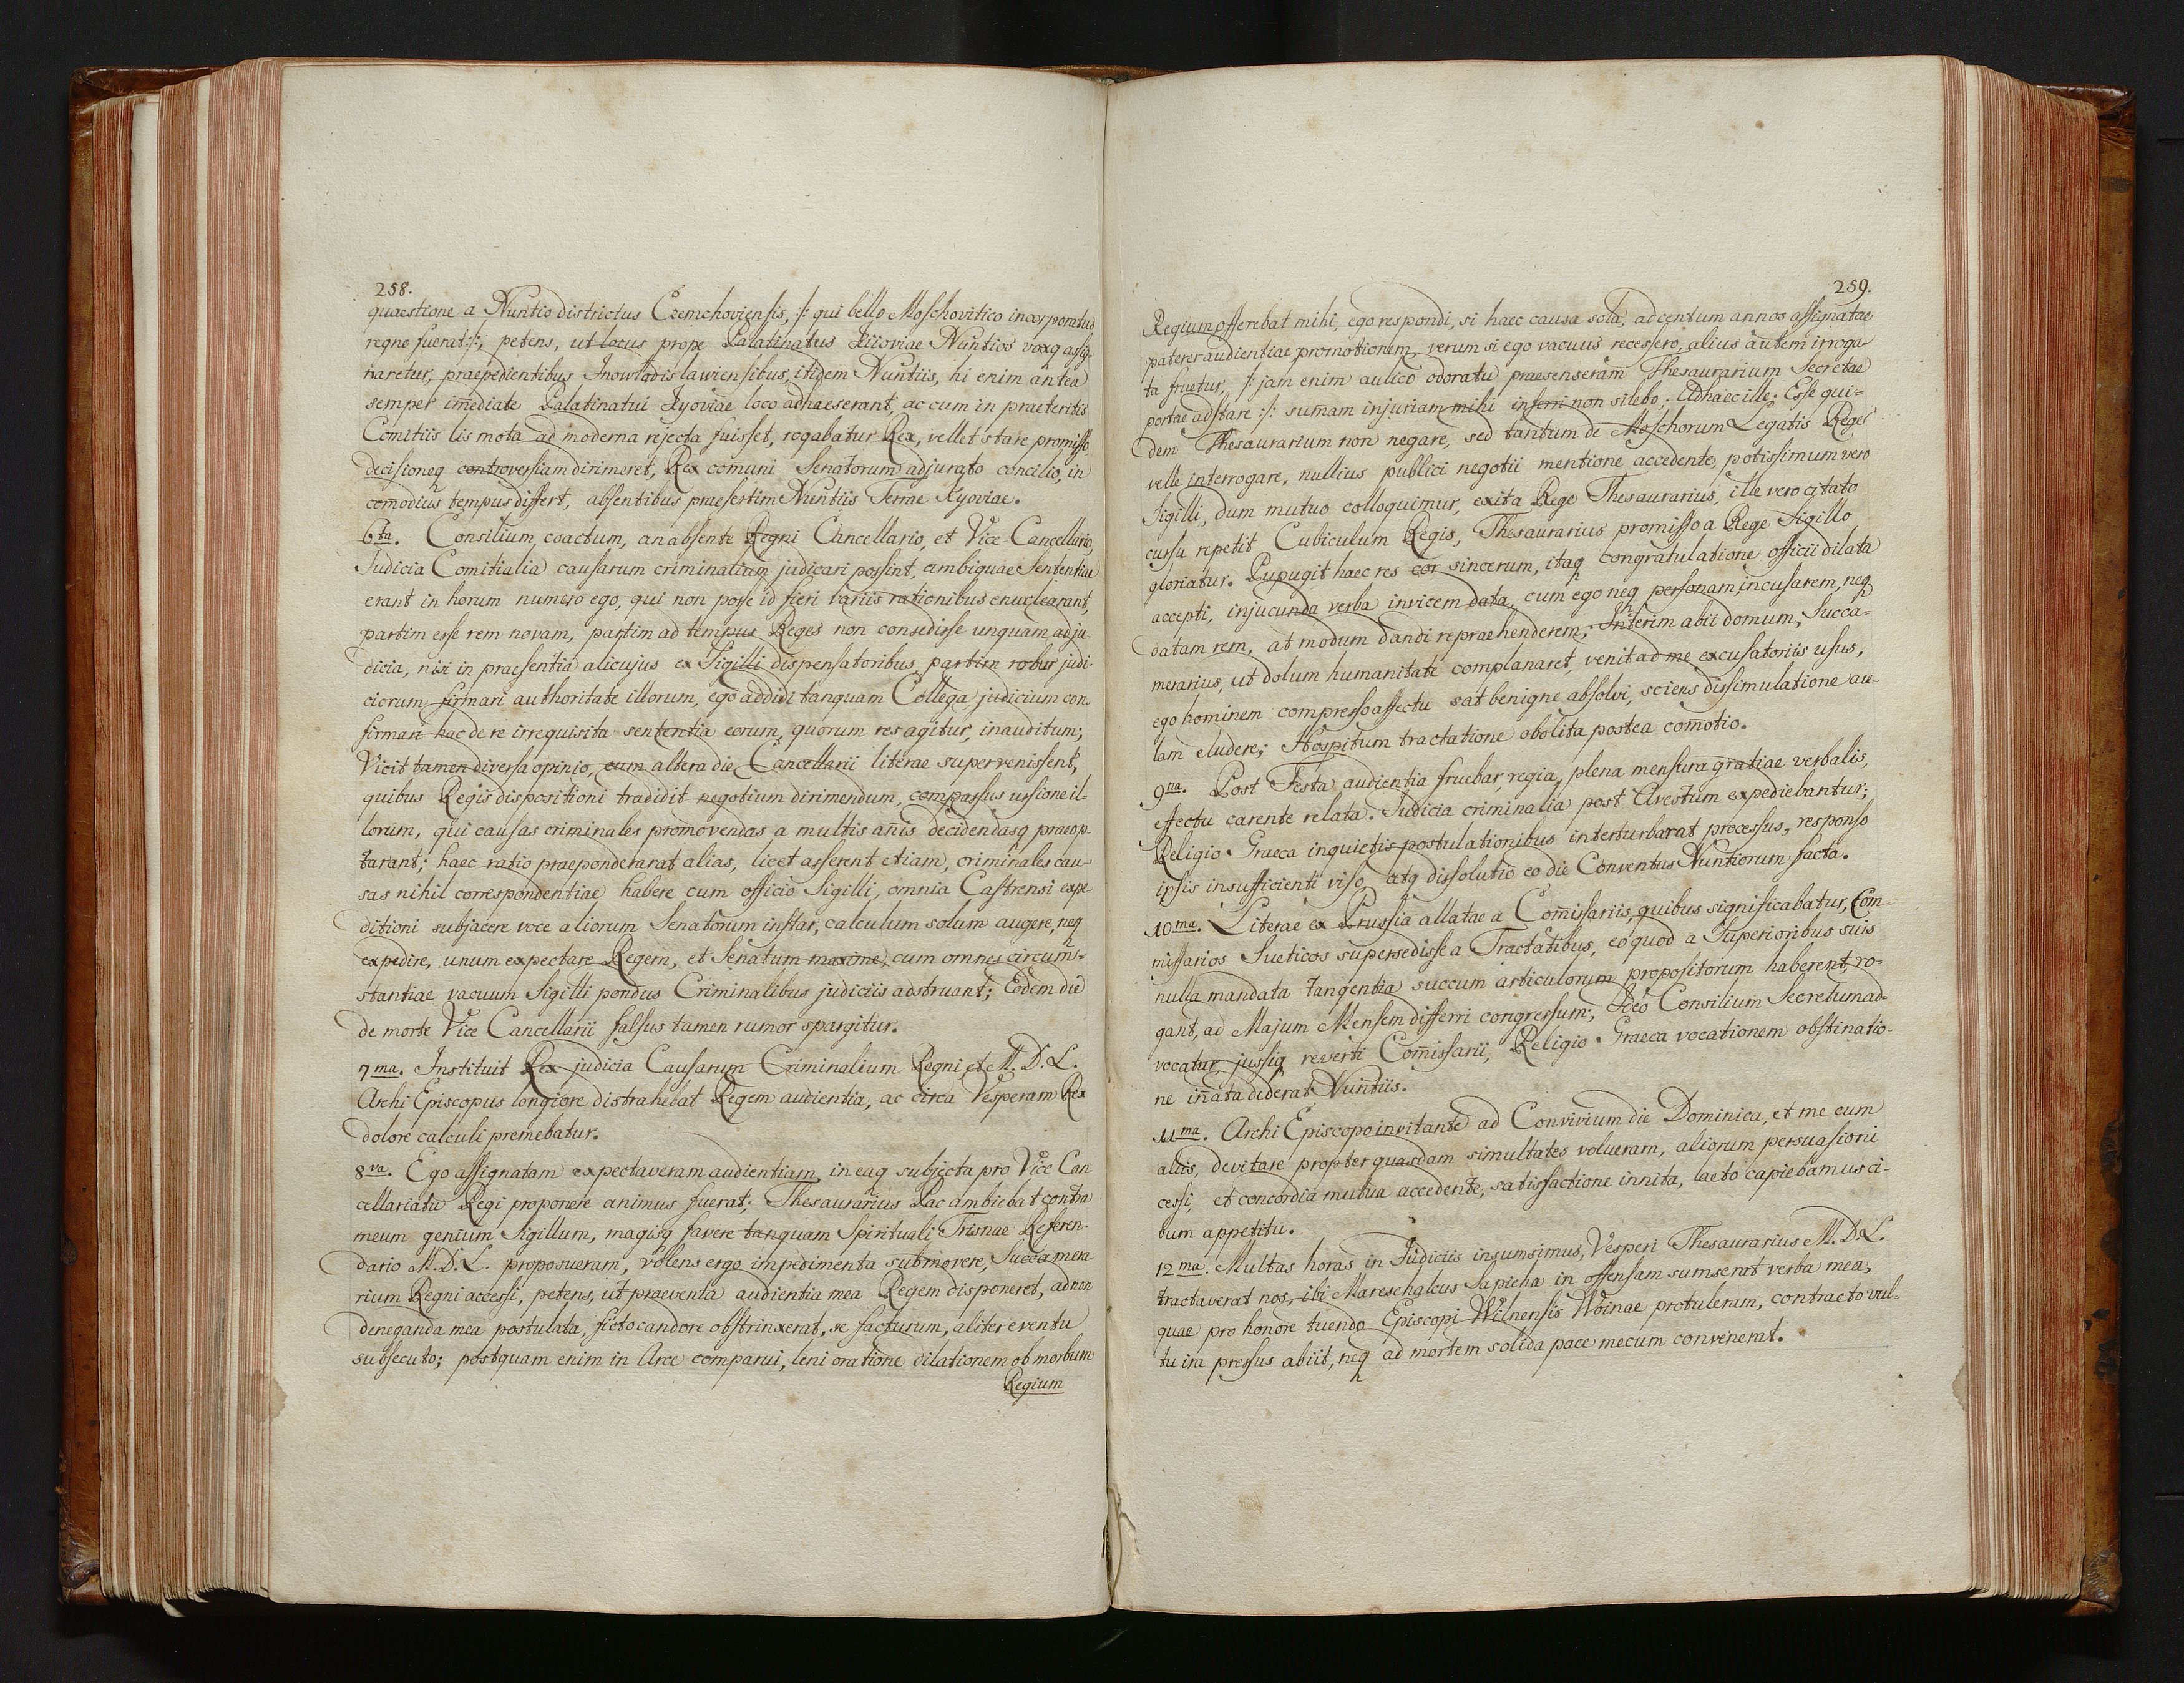 258.
quaestione a Nuntio districtus Czemchoviensis, /: qui bello Moschovitico incorporatus
regno fuerat :/, petens, ut locus prope Palatinatus Kiioviae Nuntios voxq assig-
naretur, praepedientibus Inowlodislawiensibus itidem Nuntiis, hi enim antea
semper im̄ediate Palatinatui Kyoviae loco adhaeserant, ac cum in praeteritis
Comitiis lis mota ad moderna rejecta fuisset, rogabatur Rex, vellet stare promisso
decisioneq controversiam dirimeret, Rex com̄uni Senatorum adjurato concilio, in
com̄odius tempus differt, absentibus praesertim Nuntiis Terrae Kyoviae.
6ta. Consilium coactum, an absente Regni Cancellario, et Vice Cancellario,
Judicia Comitialia causarum criminalium judicari possint, ambiguae Sententiae
erant in horum numero ego, qui non posse id fieri variis rationibus enuclearant,
partim esse rem novam, partim ad tempus Reges non consedisse unquam ad ju-
dicia, nisi in praesentia alicujus ex Sigilli dispensatoribus, partim robur judi-
ciorum firmari authoritate illorum, ego addidi tanquam Collega judicium con-
firmari hac de re irrequisita sententia eorum, quorum res agitur, inauditum;
Vicit tamen diversa opinio, cum altera die Cancellarii literae supervenissent,
quibus Regis dispositioni tradidit negotium dirimendum, compassus ursione il-
lorum, qui causas criminales promovendas a multis an̄is decidendasq praeop-
tarant; haec ratio praeponderarat alias, licet asserent etiam, criminales cau-
sas nihil correspondentiae habere cum officio Sigilli, omnia Castrensi expe-
ditioni subjacere voce aliorum Senatorum instar, calculum solum augere, neq
expedire, unum expectare Regem, et Senatum maxime, cum omnes circum-
stantiae vacuum Sigilli pondus Criminalibus judiciis adstruant; Eodem die
de morte Vice Cancellarii falsus tamen rumor spargitur.
7ma. Instituit Rex judicia Causarum Criminalium Regni, et M. D. L.
Archi Episcopus longiore distrahebat Regem audientia, ac circa Vesperam Rex
dolore calculi premebatur.
8va. Ego assignatam expectaveram audientiam, in eaq subjecta pro Vice Can
cellariatu Regi proponere animus fuerat; Thesaurarius Pac ambiebat contra
meum genium Sigillum, magisq favere tanquam Spirituali Trisnae Referen-
dario M. D. L. proposueram, volens ergo impedimenta submovere, Succamera
rium Regni accessi, petens, ut praeventa audientia mea Regem disponeret, ad non
deneganda mea postulata, ficto candore obstrinxerat, se facturum, aliter eventu
subsecuto; postquam enim in Arce comparui, leni oratione dilationem ob morbum
Regium
259.
Regium offerebat mihi, ego respondi, si haec causa sola, ad centum annos assignatae
paterer audientiae promotionem, verum si ego vacuus recessero, alius autem irroga-
ta fruetur, /: jam enim aulico odoratu praesenseram Thesaurarium Secretae
portae adstare :/: sum̄am injuriam mihi inferri non silebo; Ad haec ille: Esse qui-
dem Thesaurarium non negare, sed tantum de Moschorum Legatis Reges
velle interrogare, nullius publici negotii mentione accedente, potissimum vero
Sigilli, dum mutuo colloquimur, exita Rege Thesaurarius, ille vero citato
cursu repetit Cubiculum Regis, Thesaurarius promisso a Rege Sigillo
gloriatur. Pupugit haec res cor sincerum, itaq congratulatione officii dilata
accepti, injucunda verba invicem data, cum ego neq personam incusarem, neq
datam rem, at modum dandi repraehenderem; Interim abii domum, Succa-
merarius, ut dolum humanitate complanaret, venit ad me excusatoriis usus,
ego hominem compresso affectu sat benigne absolvi, sciens dissimulatione au-
lam eludere; Hospitum tractatione obolita postea com̄otio.
9na. Post Festa audientia fruebar regia, plena mensura gratiae verbalis,
effectu carente relata. Judicia criminalia post Arestum expediebantur;
Religio Graeca inquietis postulationibus interturbarat processus, responso
ipsis insufficienti viso, atq dissolutio eo die Conventus Nuntiorum facta.
10ma. Literae ex Prussia allatae a Com̄issariis, quibus significabatur, Com-
missarios Sueticos supersedisse a Tractatibus, eo quod a Superioribus suis
nulla mandata tangentia succum articulorum propositorum haberent, ro-
gant, ad Majum Mensem differri congressum; Ideo Consilium Secretum ad-
vocatur, jussiq reverti Com̄issarii, Religio Graeca vocationem obstinatio-
ne in̄ata dederat Nuntiis.
11ma. Archi Episcopo invitante ad Convivium die Dominica, et me cum
aliis, devitare propter quasdam simultates volueram, aliorum persuasioni
cessi, et concordia mutua accedente, satisfactione innita, laeto capiebamus ci-
bum appetitu.
12ma. Multas horas in Judiciis insumsimus, Vesperi Thesaurarius M. D. L.
tractaverat nos, ibi Mareschalcus Sapieha in offensam sumserat verba mea,
quae pro honore tuendo Episcopi Wilnensis Woinae protuleram, contracto vul-
tu ira pressus abiit, neq ad mortem solida pace mecum convenerat.